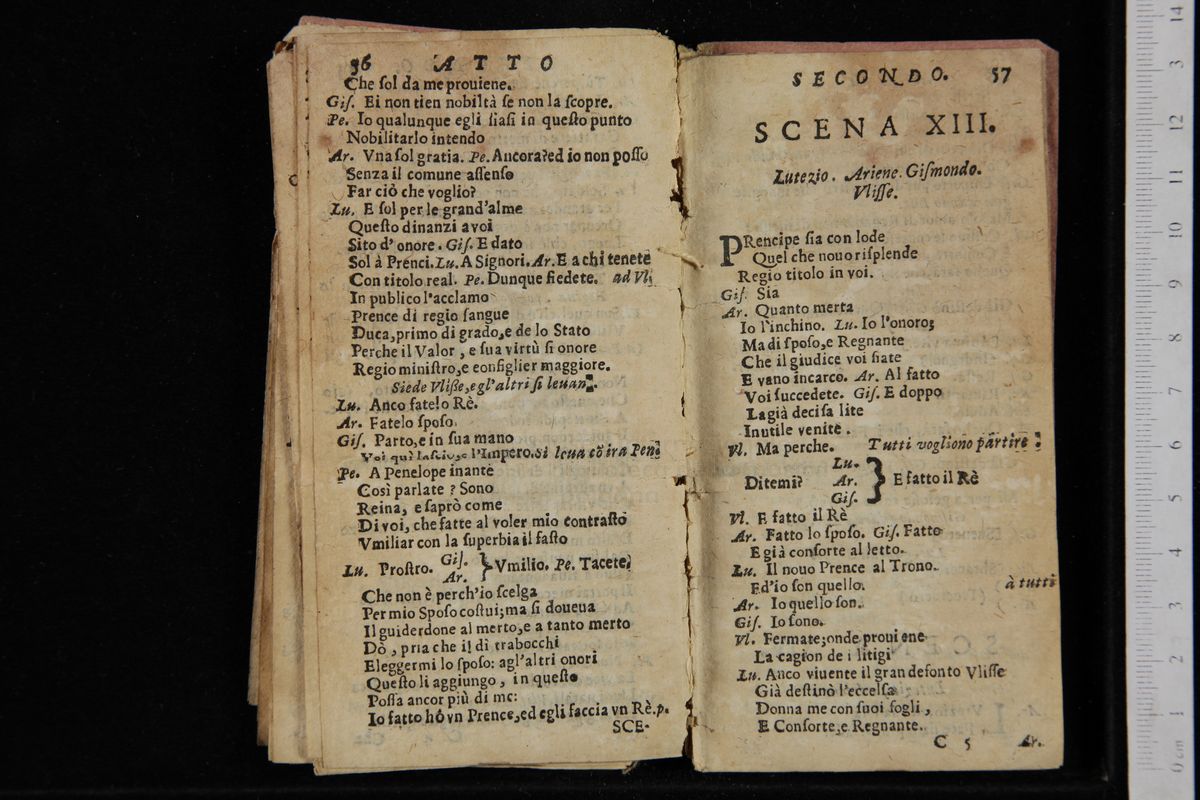 56 ATTO
Che ſol da me prouiene.
Giſ. Ei non tien nobiltà ſe non la ſcopre.
Pe. Io qualunque egli ſiaſi in queſto punto
Nobilitarlo intendo
Ar. Vna ſol gratia. Pe. Ancora? ed io non poſſo
Senza il comune aſſenſo
Far ciò che voglio?
Lu. E ſol per le grand'alme
Queſto dinanzi a voi
Sito d'onore. Giſ. E dato
Sol à Prenci. Lu. A Signori. Ar. E a chi tenete
Con titolo real. Pe. Dunque ſiedete. ad Vli
In publico l'acclamo
Prence di regio ſangue
Duca, primo di grado, e de lo Stato
Perche il Valor, e ſua virtù ſi onore
Regio miniſtro, e conſiglier maggiore.
Siede Vliſſe, e gl'altri ſi leuan
Lu. Anco fatelo Rè.
Ar. Fatelo ſpoſo.
Giſ. Parto, e in ſua mano
Voi quì laſcio, e l'Impero. si leua cō ira Pen.
Pe. A Penelope inante
Così parlate? Sono
Reina, e ſaprò come
Di voi, che fatte al voler mio contraſto
Vmiliar con la ſuperbia il faſto
Lu. Proſtro. Giſ. Ar. } Vmilio. Pe. Tacete,
Che non è perch'io ſcelga
Per mio Spoſo coſtui; ma ſi doueua
Il guiderdone al merto, e a tanto merto
Dò, pria che il dì trabocchi
Eleggermi lo ſpoſo: agl'altri onori
Queſto li aggiungo, in queſto
Poſſa ancor più di me:
Io fatto hò vn Prence, ed egli faccia vn Rè. p.
SCE-
SECONDO. 57
SCENA XIII.
Lutezio. Ariene. Giſmondo.
Vliſſe.
PRencipe ſia con lode
Quel che nouo riſplende
Regio titolo in voi.
Giſ. Sia
Ar. Quanto merta
Io l'inchino. Lu. Io l'onoro;
Ma di ſpoſo, e Regnante
Che il giudice voi ſiate
E vano incarco. Ar. Al fatto
Voi ſuccedete. Giſ. E doppo
La già deciſa lite
Inutile venite.
Vl. Ma perche. Tutti vogliono partire
Ditemi? Lu. Ar. Giſ. } E fatto il Rè
Vl. E fatto il Rè
Ar. Fatto lo ſpoſo. Giſ. Fatto
E già conſorte al letto.
Lu. Il nouo Prence al Trono.
Ed'io ſon quello. à tutti
Ar. Io quello ſon.
Giſ. Io ſono.
Vl. Fermate; onde prouiene
La cagion de i litigi
Lu. Anco viuente il gran defonto Vliſſe
Già deſtinò l'eccelſa
Donna me con ſuoi fogli,
E Conſorte, e Regnante.
C 5 Ar.